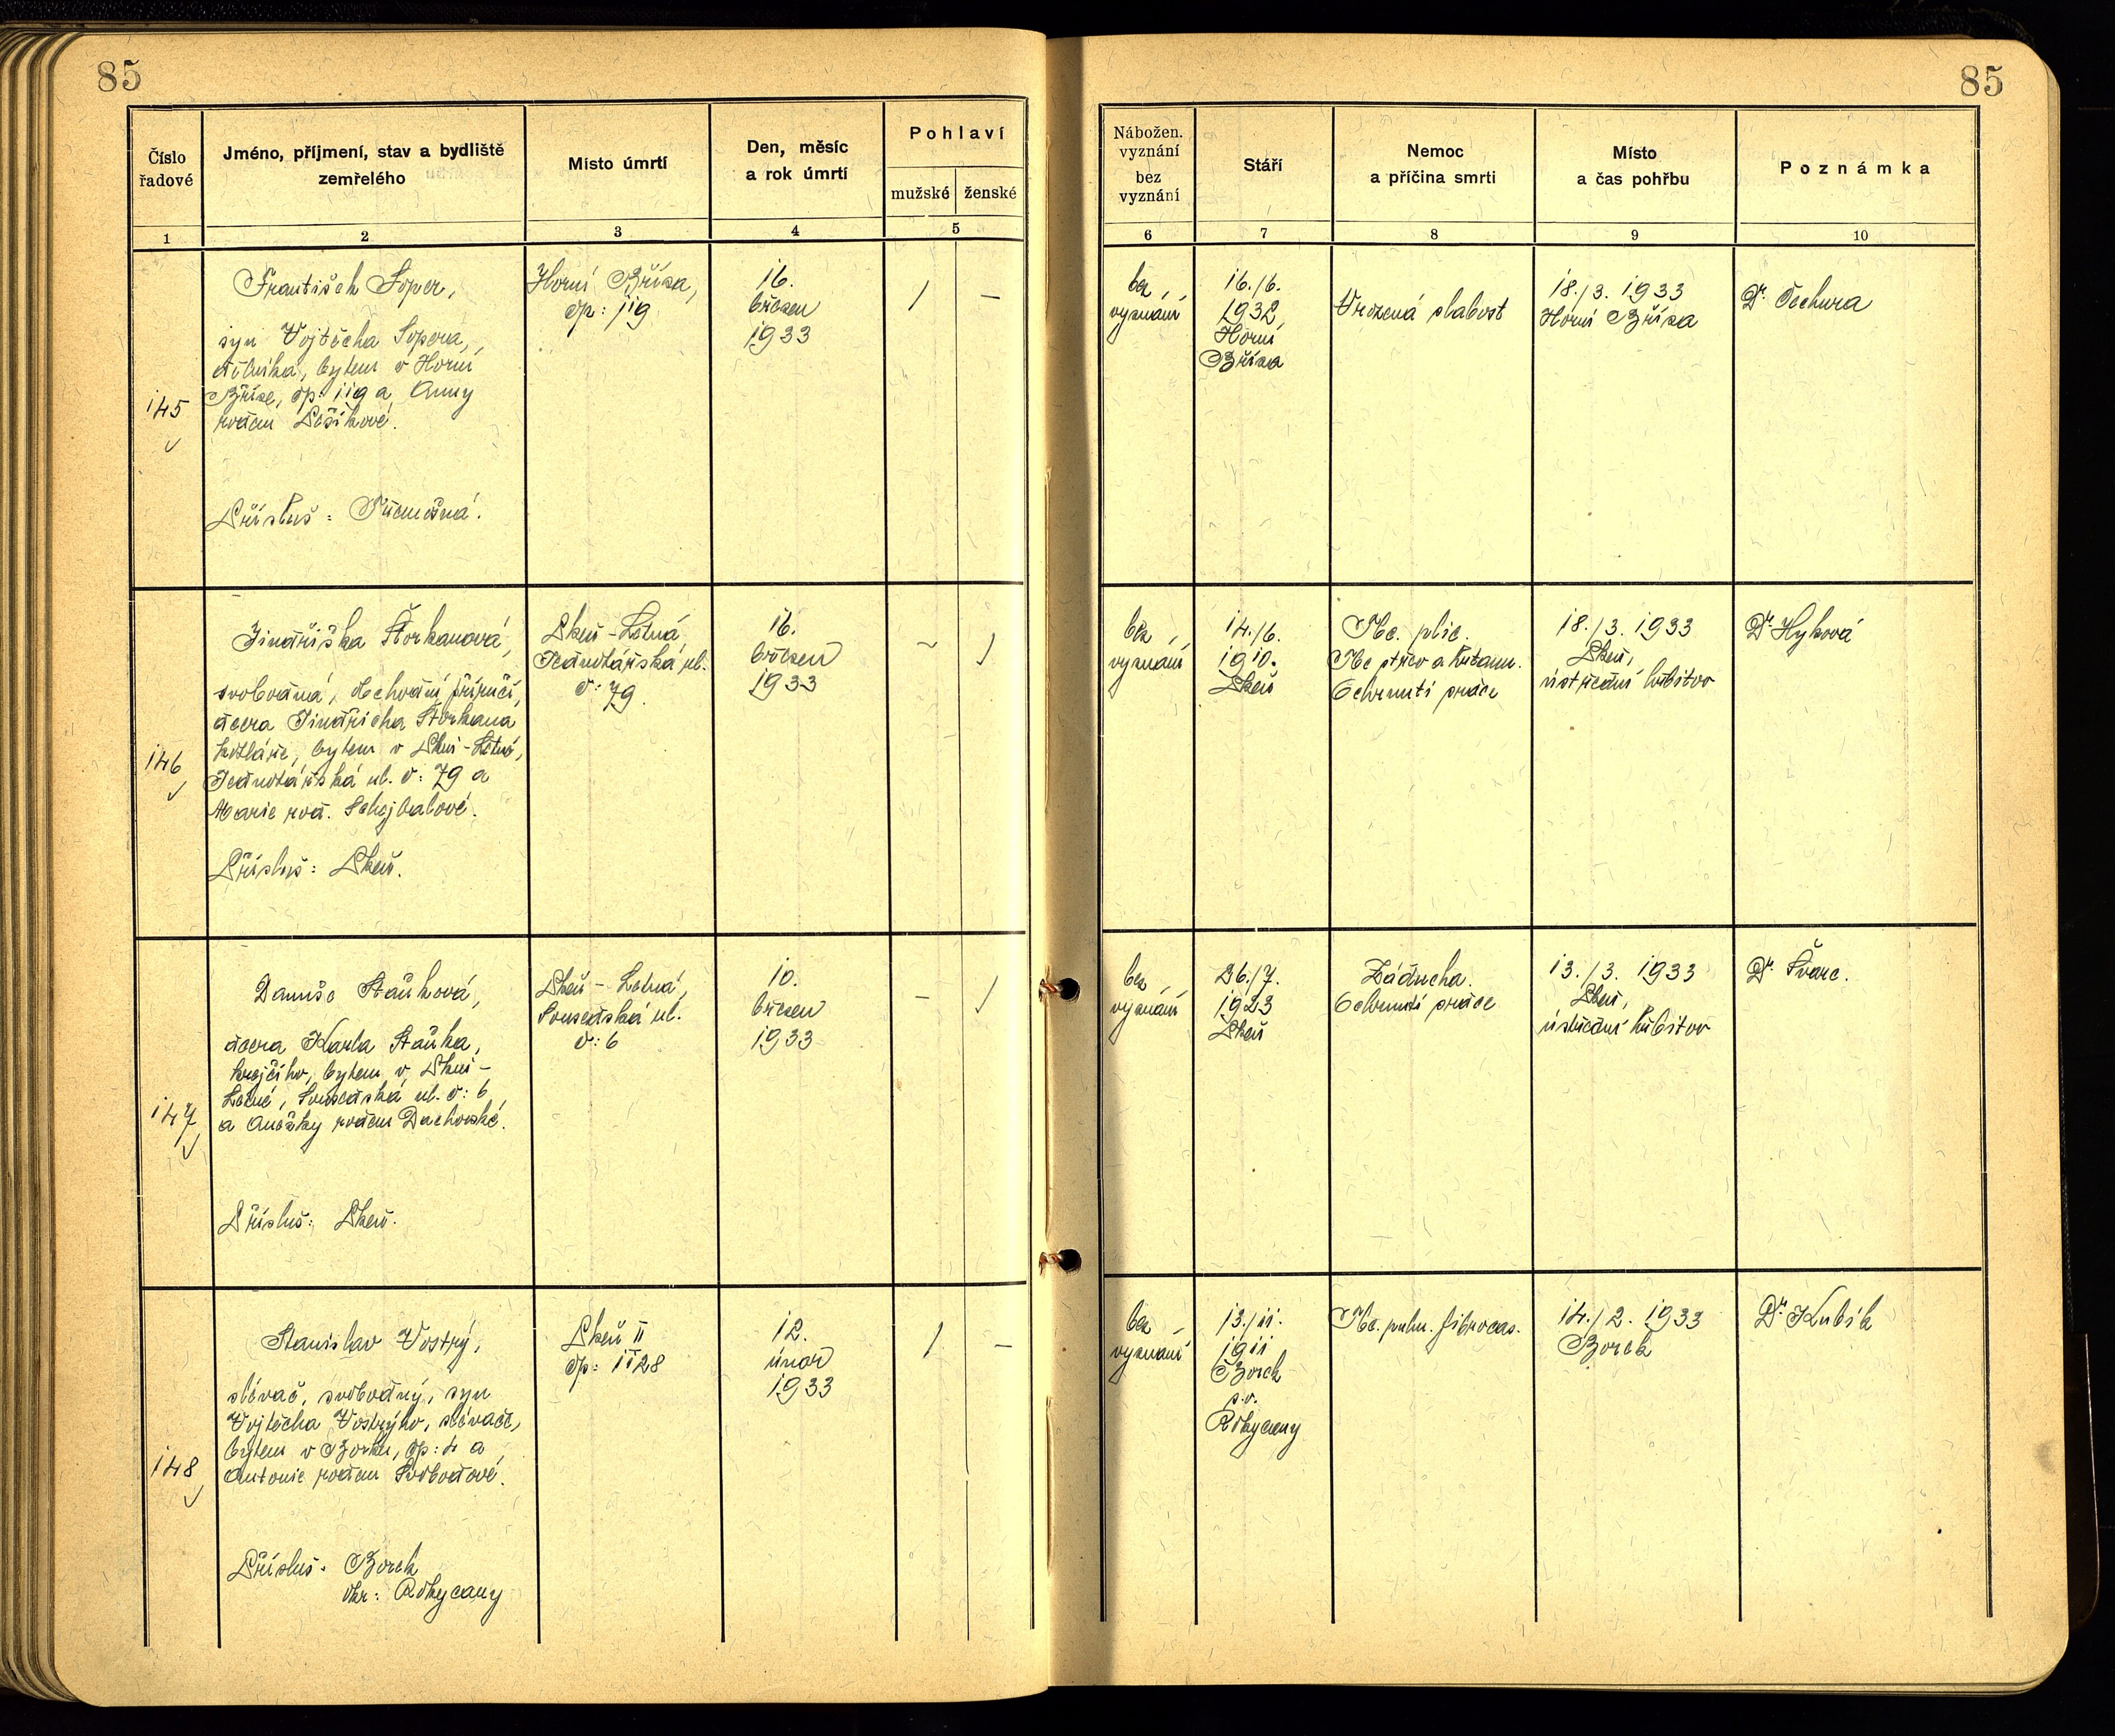 85
85
Číslo
řadové
Jméno, příjmení, stav a bydliště
zemřelého
Místo úmrtí
Den, měsíc
a rok úmrtí
Pohlaví
mužské
ženské
Nábožen.
vyznání
bez
vyznání
Stáří
Nemoc
a příčina smrti
Místo
a čas pohřbu
Poznámka
1
2
3
4
5
6
7
8
9
10
145
František Soper,
syn Vojtěcha Sopera,
dělníka, bytem v Horní
Bříze, čp: 119 a Anny
rodem
Přísluš: Třemošná.
Horní Bříza,
čp: 119
16.
březen
1933
/
—
bez
vyznání
16./6.
1932
Horní
Bříza
Vrozená slabost
18./3. 1933
Horní Bříza
Dr. Čechura
146
Jindřiška Štorkanová,
svobodná, obchodní příručí,
dcera Jindřicha Štorkana
kotláře, bytem v Plzni-Letné,
Jednotářská ul. č: 79 a
Marie rod. Schejbalové.
Přísluš: Plzeň.
Plzeň-Letná
Jednotářská ul.
č: 79
16.
březen
1933
~
/
bez
vyznání
14./6.
1910.
Plzeň
Tbc. plic.
Tbc střev a
Ochrnutí srdce
18./3. 1933
Plzeň,
ústřední hřbitov
Dr. Hyková
147
Danuše Staňková,
dcera Karla Staňka,
krejčího, bytem v Plzni-
Letné, Sousedská ul. č: 6
a Anežky rodem
Přísluš: Plzeň.
Plzeň-Letná,
Sousedská ul.
č: 6
10.
březen
1933
—
/
bez
vyznání
26./7.
1923
Plzeň
Záducha.
Ochrnutí srdce
13./3. 1933
Plzeň,
ústřední hřbitov
Dr. Švarc.
148
Stanislav Vostrý,
slévač, svobodný, syn
Vojtěcha Vostrýho, slévače,
bytem v Borku, čp: 4 a
Antonie rodem Svobodové.
Přísluš: Borek
okr: Rokycany
Plzeň II
čp: 1128
12.
únor
1933
/
—
bez
vyznání
13./11.
1911
Borek
Rokycany
Tbc. pulm. fibrocas.
14./2. 1933
Borek
Dr. Kubík